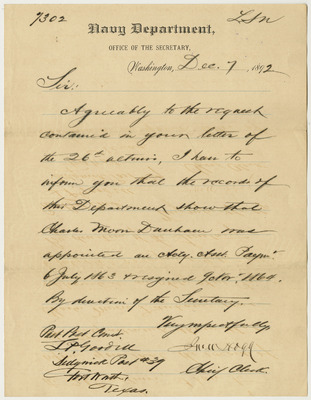 7302
Navy Department,
OFFICE OF THE SECRETARY,
Washington, Dec. 7, 1892
Sir:
Agreeably to the request
contained in your letter of
the 26th ultimo, I have to
inform you that the records of
this Department show that
Charles Moon Dunham was
appointed an Actg. Asst. Paymr
6 July 1863 & resigned 9 Octr. 1864.
By direction of the Secretary.
Very respectfully,
Chief Clerk.
Past Post Comd.
Sedgwick Post #39
Fort Worth,
Texas.